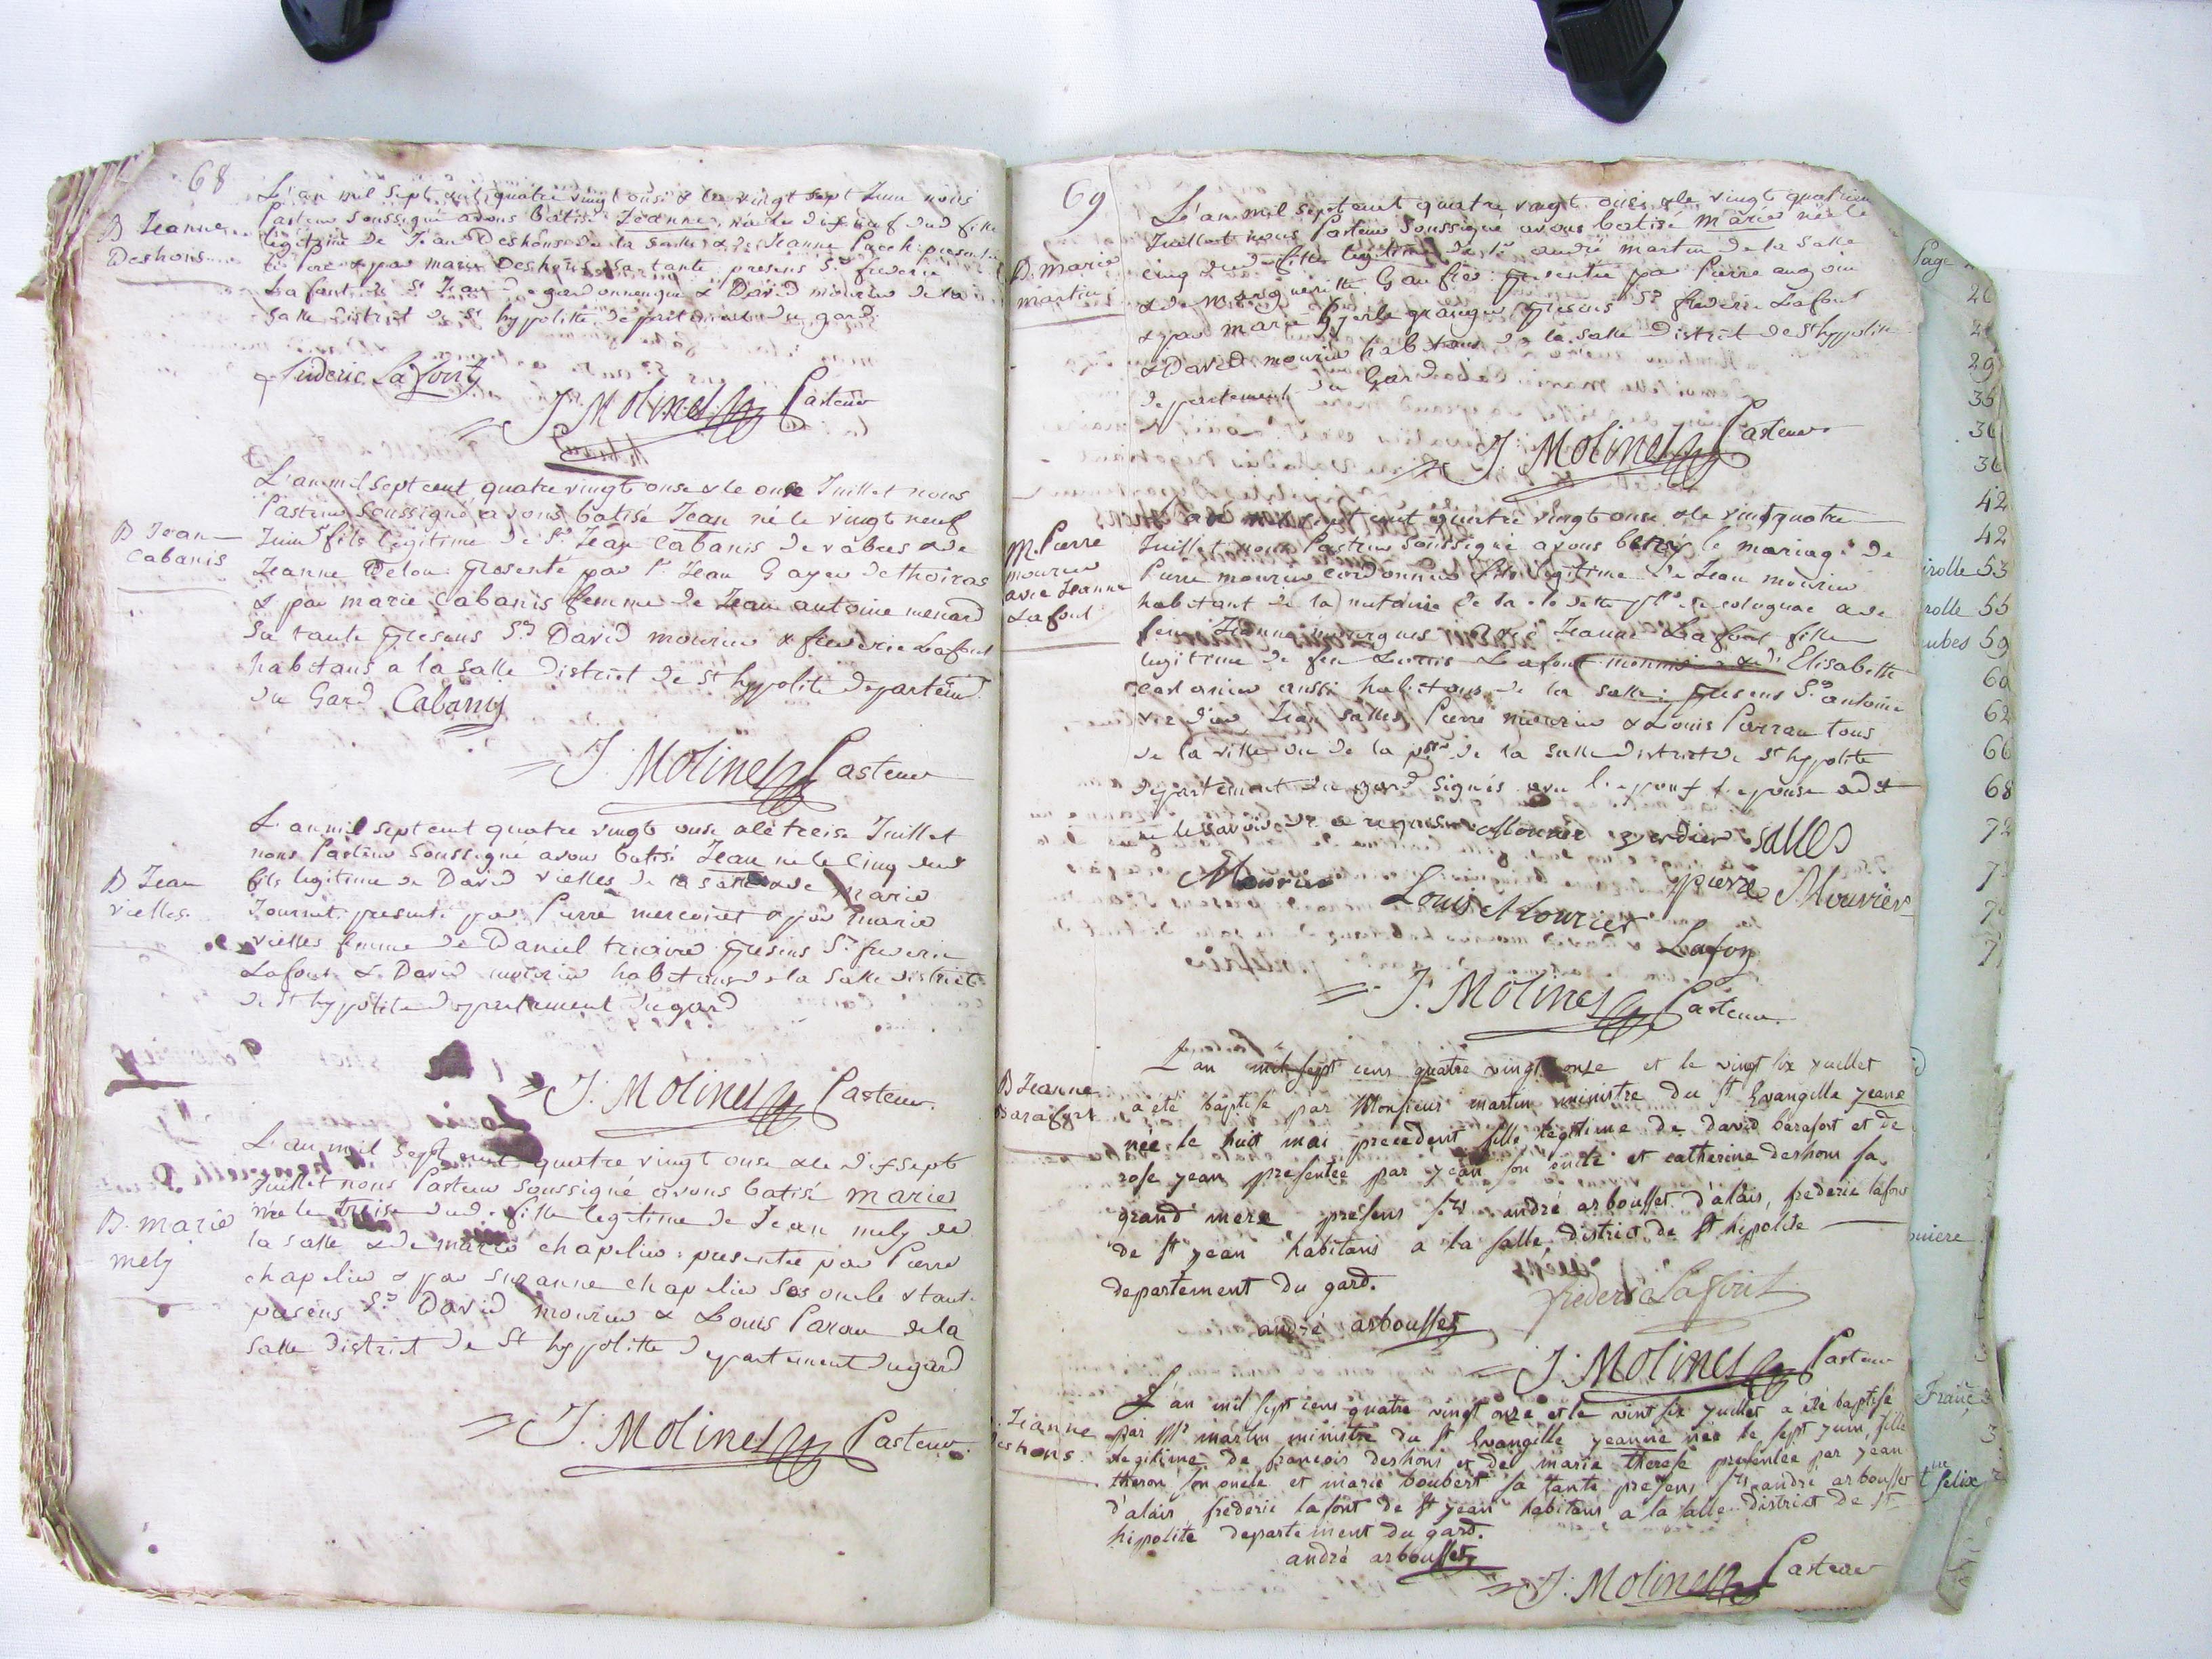 68
B Jeanne
Deshons
L'an mil sept cent quatre vingt onse & le vingt sept Juin nous
Pasteur soussigné avons batisé Jeanne, née le dix neuf dud fille
legitime de Jean Deshons de la Salle & de Jeanne
le Pere & par marie Deshons sa tante presens Srs frederic
Lafont de St Jean de gardonnenque & David mourier de la
Salle district de St hypolitte departement du gard
frederic Lafont
J. Molines Pasteur
B Jean
Cabanis
L'an mil sept cent quatre vingt onse & le onse Juillet nous
Pasteur soussigné avons batisé Jean né le vingt neuf
Juin fils legitime de Sr Jean Cabanis de vabres & de
Jeanne Delon: presenté par Sr Jean Gayen de thoiras
& par marie Cabanis femme de Jean antoine menard
sa tante presens Srs David mourier & frederic Lafont
habitans a la Salle District de St hypolite departemt
du Gard Cabanis
J. Molines Pasteur
B Jean
vielles
L'an mil sept cent quatre vingt onse & le treise Juillet
nous Pasteur soussigné avons batisé Jean né le Cinq dud
fils legitime de David vielles de la Salle & de marie
Journet: presenté par Pierre mercoiret & par marie
vielles femme de Daniel triaire presens Srs frederic
Lafont & David mourier habitans de la Salle district
de St hypolite departement du gard
J. Molines Pasteur.
B. marie
mely
L'an mil sept cent quatre vingt onse & le dix sept
Juillet nous Pasteur soussigné avons batisé marie
née le treise dud. fille legitime de Jean mely de
la Salle & de marie chapelier: presentée par Pierre
chapelier & par Suzanne chapelier ses oncle & tante
presens Srs David mourier & Louis Paran de la
Salle district de St hypolitte departement du gard
J. Molines Pasteur.
69
B. marie
martin
L'an mil sept cent quatre vingt onse & le vingt quatrieme
Juillet nous Pasteur soussigné avons batisé marie née le
cinq dud fille legitime de Sr andré martin de la Salle
& de marguerite Gaufres: presentée par Pierre
& par marie granger presens Srs frederic Lafont
& David mourier habitans de la Salle District de St hypolite
departement du Gard
J. Molines Pasteur
M. Pierre
mourier
avec Jeanne
Lafont
L'an mil sept cent quatre vingt onse & le vingt quatre
Juillet nous Pasteur soussigné avons beni le mariage de
Pierre mourier cordonnier fils legitime de Jean mourier
habitant de la de la de colognac & de
feue Jeanne avec Jeanne Lafont fille
legitime de feu Louis Lafont & de Elisabeth
castanier aussi habitans de la Salle: presens Srs antoine
verdier Jean Salles, Pierre mourier & Louis Parran tous
de la ville ou de la psse de la Salle district de St hypolite
departement du gard signés avec l'epoux l'epouse a dit
ne le savoir de ce requise Mourier verdier Salles
Mourier
Louis Mourier
pierre Mourier
Lafon
J. Molines Pasteur.
B Jeanne
Barafort
L'an mil sept cens quatre vingt onze et le vingt six juillet
a été baptisé par Monsieur martin ministre du St Evangille jeane
née le huit mai precedent fille legitime de david barafort et de
rose jean presentée par jean son oncle et catherine deshons sa
grand mere presens srs andré arbousset d'alais, frederic lafont
de st jean habitans a la salle district de st hipolite
departement du gard.
andré arbousset
frederic Lafont
J. Molines Pasteur
Jeanne
Deshons.
L'an mil sept cens quatre vingt onze et le vint six juillet a été baptisé
par Mr martin ministre du St Evangille jeanne née le sept juin, fille
legitime de francois deshons et de marie therese presentée par jean
theron son oncle et marie boubert sa tante presens srs andré arbousset
d'alais frederic lafont de st jean habitans a la salle district de st
hipolite departement du gard.
andré arbousset
J. Molines Pasteur
Page
29
42
42
53
55
59
62
66
68
72